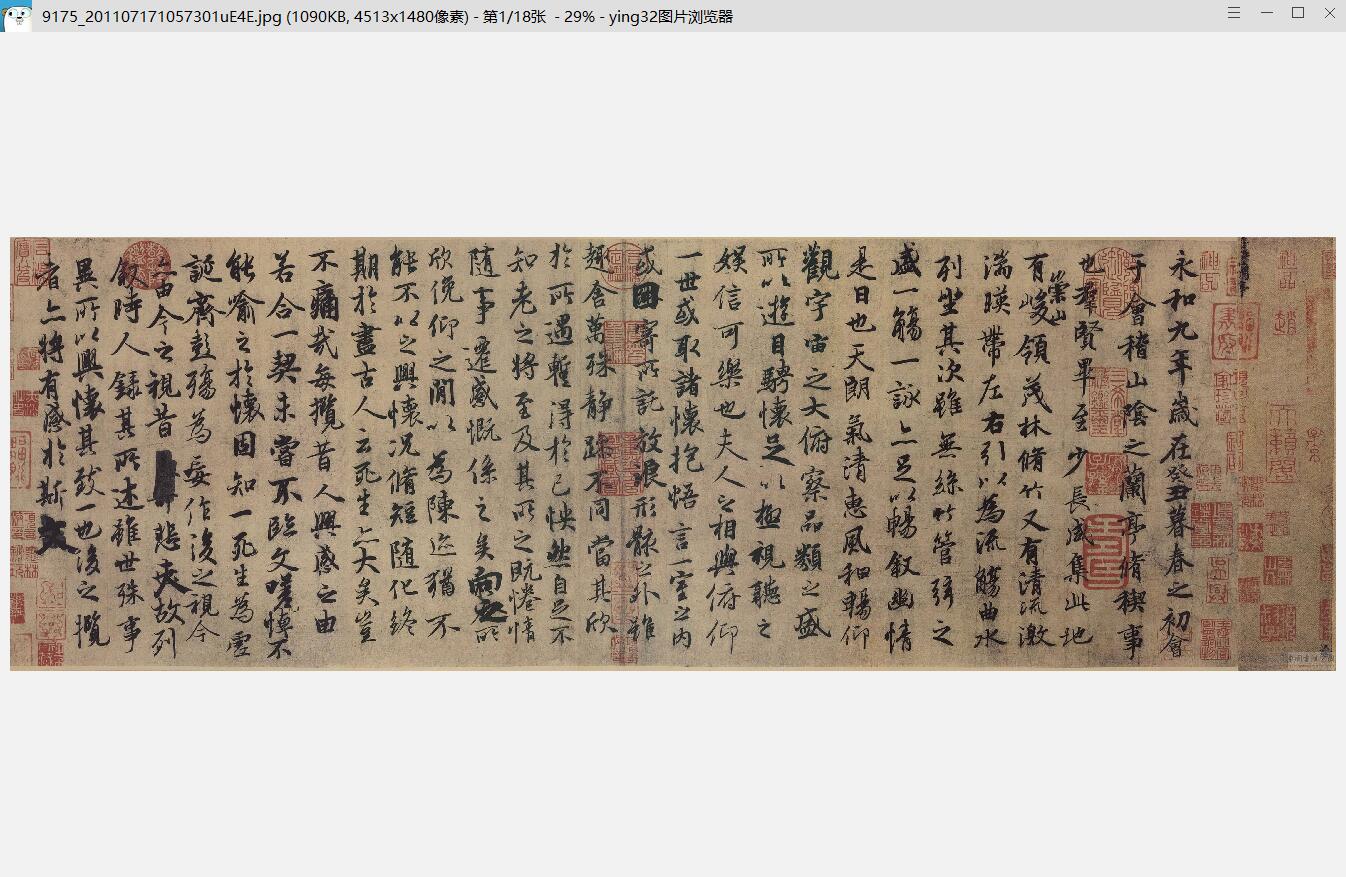 9175_201107171057301uE4E.jpg (1090KB, 4513x1480像素) - 第1/18张 - 29% - ying32图片浏览器
永和九年歲在癸丑暮春之初會
于會稽山陰之蘭亭脩稧事
也羣賢畢至少長咸集此地
有崇山峻領茂林脩竹又有清流激
湍暎帶左右引以為流觴曲水
列坐其次雖無絲竹管弦之
盛一觴一詠亦足以暢敘幽情
是日也天朗氣清惠風和暢仰
觀宇宙之大俯察品類之盛
所以遊目騁懷足以極視聽之
娛信可樂也夫人之相與俯仰
一世或取諸懷抱悟言一室之內
或因寄所託放浪形骸之外雖
趣舍萬殊靜躁不同當其欣
於所遇暫得於己怏然自足不
知老之將至及其所之既惓情
隨事遷感慨係之矣向之所
欣俛仰之閒以為陳迹猶不
能不以之興懷況脩短隨化終
期於盡古人云死生亦大矣豈
不痛哉每攬昔人興感之由
若合一契未嘗不臨文嗟悼不
能喻之於懷固知一死生為虛
誕齊彭殤為妄作後之視今
亦由今之視昔悲夫故列
敘時人錄其所述雖世殊事
異所以興懷其致一也後之攬
者亦將有感於斯文